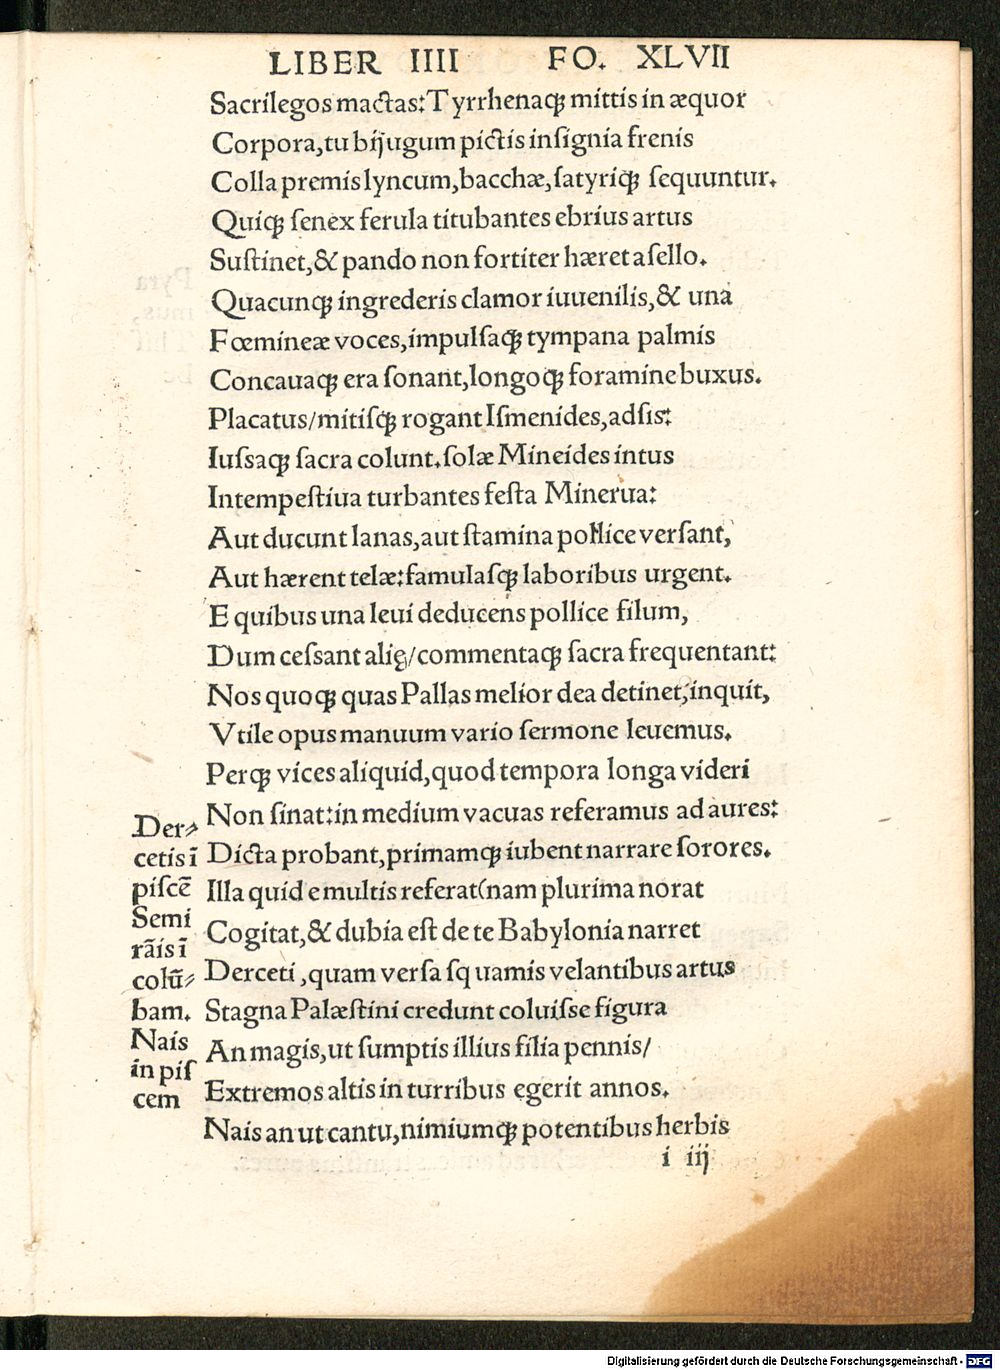 LIBER IIII FO. XLVII
Sacrilegos mactas:Tyrrhenaqꝫ mittis in æquor
Corpora,tu bijugum pictis inſignia frenis
Colla premis lyncum,bacchæ,ſatyriqꝫ ſequuntur.
Quiqꝫ ſenex ferula titubantes ebrius artus
Suſtinet,& pando non fortiter hæret aſello.
Quacunqꝫ ingrederis clamor iuuenilis,& una
Fœmineæ voces,impulſaqꝫ tympana palmis
Concauaqꝫ era ſonant,longoqꝫ foramine buxus.
Placatus/mitiſqꝫ rogant Iſmenides,adſis:
Iuſsaqꝫ ſacra colunt.ſolæ Mineides intus
Intempeſtiua turbantes feſta Minerua:
Aut ducunt lanas,aut ſtamina pollice verſant,
Aut hærent telæ:famulaſqꝫ laboribus urgent.
E quibus una leui deducens pollice filum,
Dum ceſsant alię/commentaqꝫ ſacra frequentant:
Nos quoqꝫ quas Pallas melior dea detinet,inquit,
Vtile opus manuum vario ſermone leuemus.
Perqꝫ vices aliquid,quod tempora longa videri
Non ſinat:in medium vacuas referamus ad aures:
Dicta probant,primamqꝫ iubent narrare ſorores.
Illa quid e multis referat(nam plurima norat
Cogitat,& dubia eſt de te Babylonia narret
Derceti ,quam verſa ſquamis velantibus artus
Stagna Palæſtini credunt coluiſse figura
An magis,ut ſumptis illius filia pennis/
Extremos altis in turribus egerit annos.
Nais an ut cantu,nimiumqꝫ potentibus herbis
i iij
Der⸗
cetis ī
piſcē
Semi
rāis ī
colū⸗
bam.
Nais
in piſ
cem
Digitalisierung gefördert durch die Deutsche Forschungsgemeinschaft - DFG